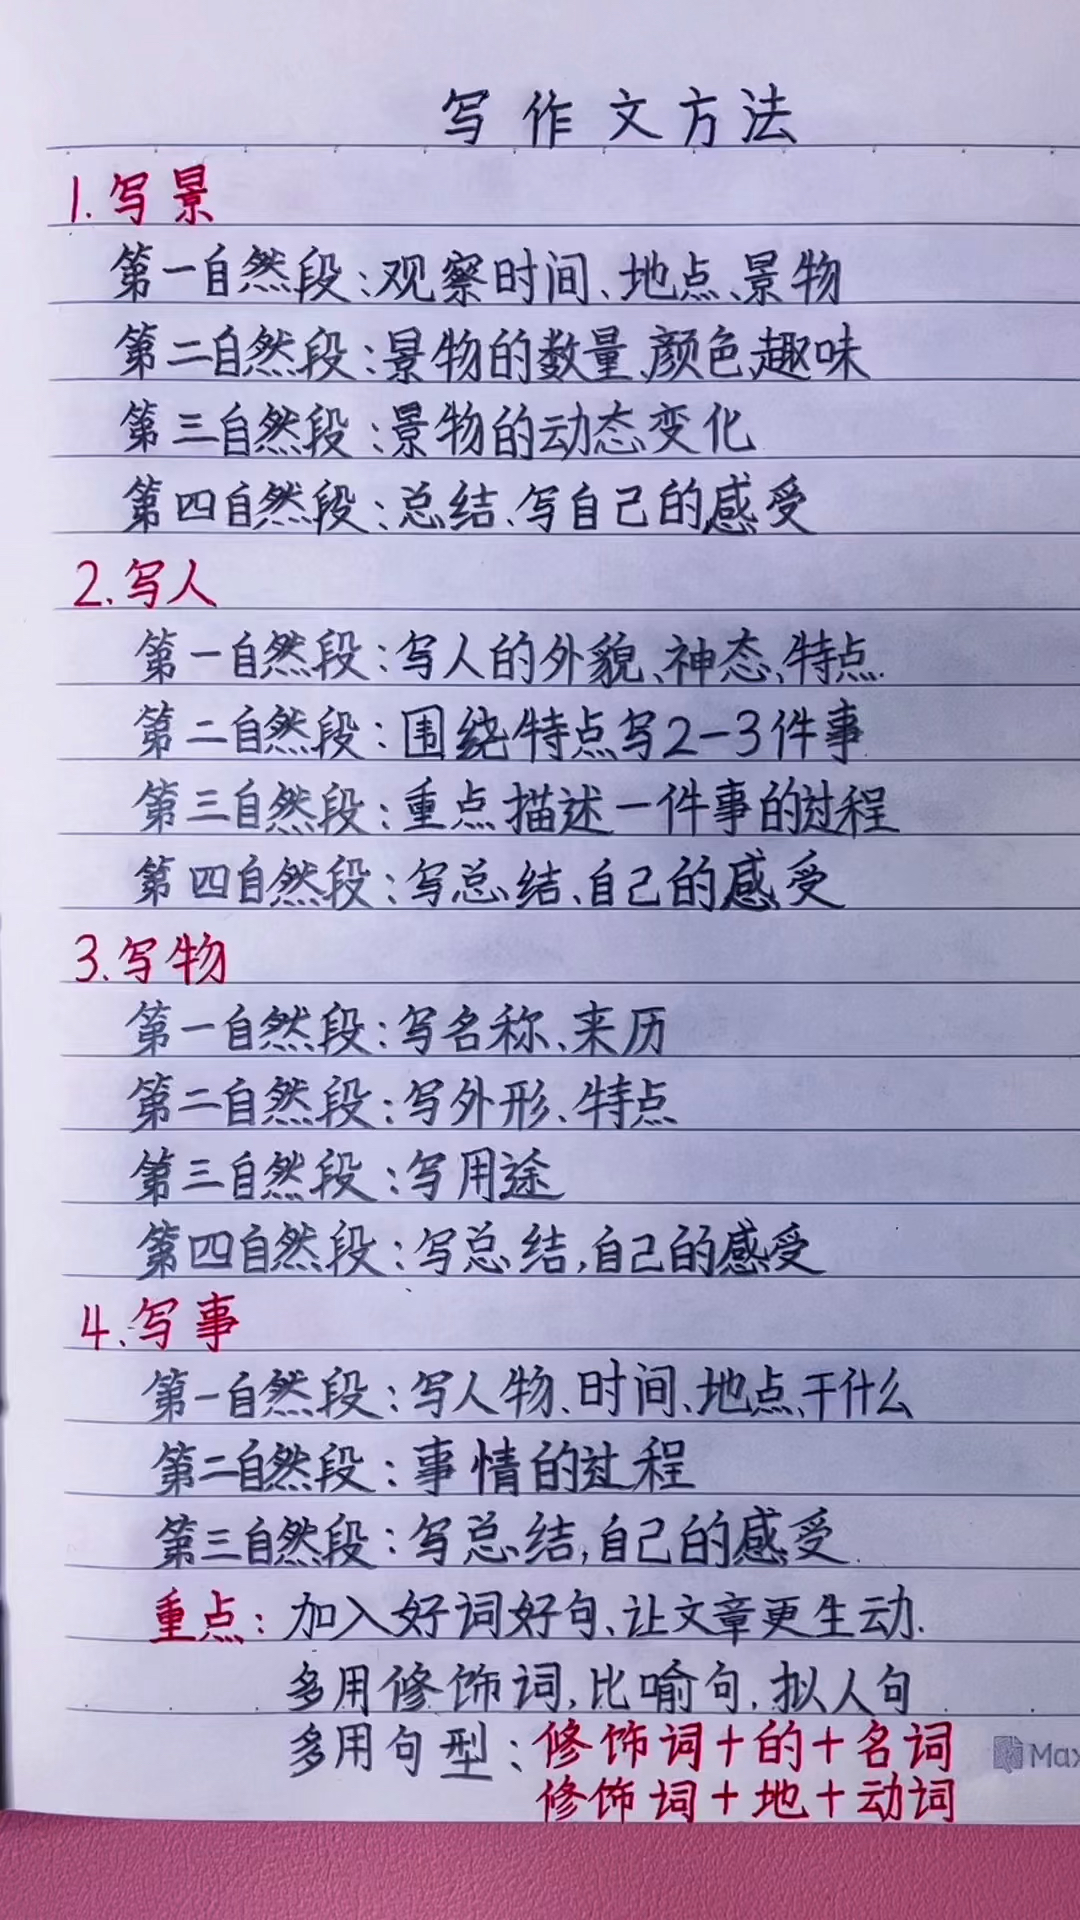 写作文方法
1.写景
第一自然段:观察时间、地点、景物
第二自然段:景物的数量、颜色、趣味
第三自然段:景物的动态变化
第四自然段:总结、写自己的感受
2.写人
第一自然段:写人的外貌、神态、特点.
第二自然段:围绕特点写2-3件事
第三自然段:重点描述一件事的过程
第四自然段:写总结、自己的感受
3.写物
第一自然段:写名称、来历
第二自然段:写外形、特点
第三自然段:写用途
第四自然段:写总结,自己的感受
4.写事
第一自然段:写人物、时间、地点、干什么
第二自然段:事情的过程
第三自然段:写总结,自己的感受.
重点:加入好词好句、让文章更生动.
多用修饰词,比喻句,拟人句
多用句型:修饰词+的+名词
修饰词+地+动词